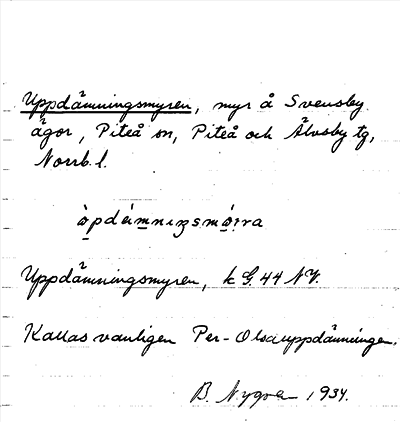 Uppdämningsmyren, myr å Svensby
ägor, Piteå sn, Piteå och Älvsby tg,
Norrb. l.
Uppdämningsmyren, k G. 44 NV.
Kallas vanligen Per-Olsauppdämningen.
B. Nygren 1934.